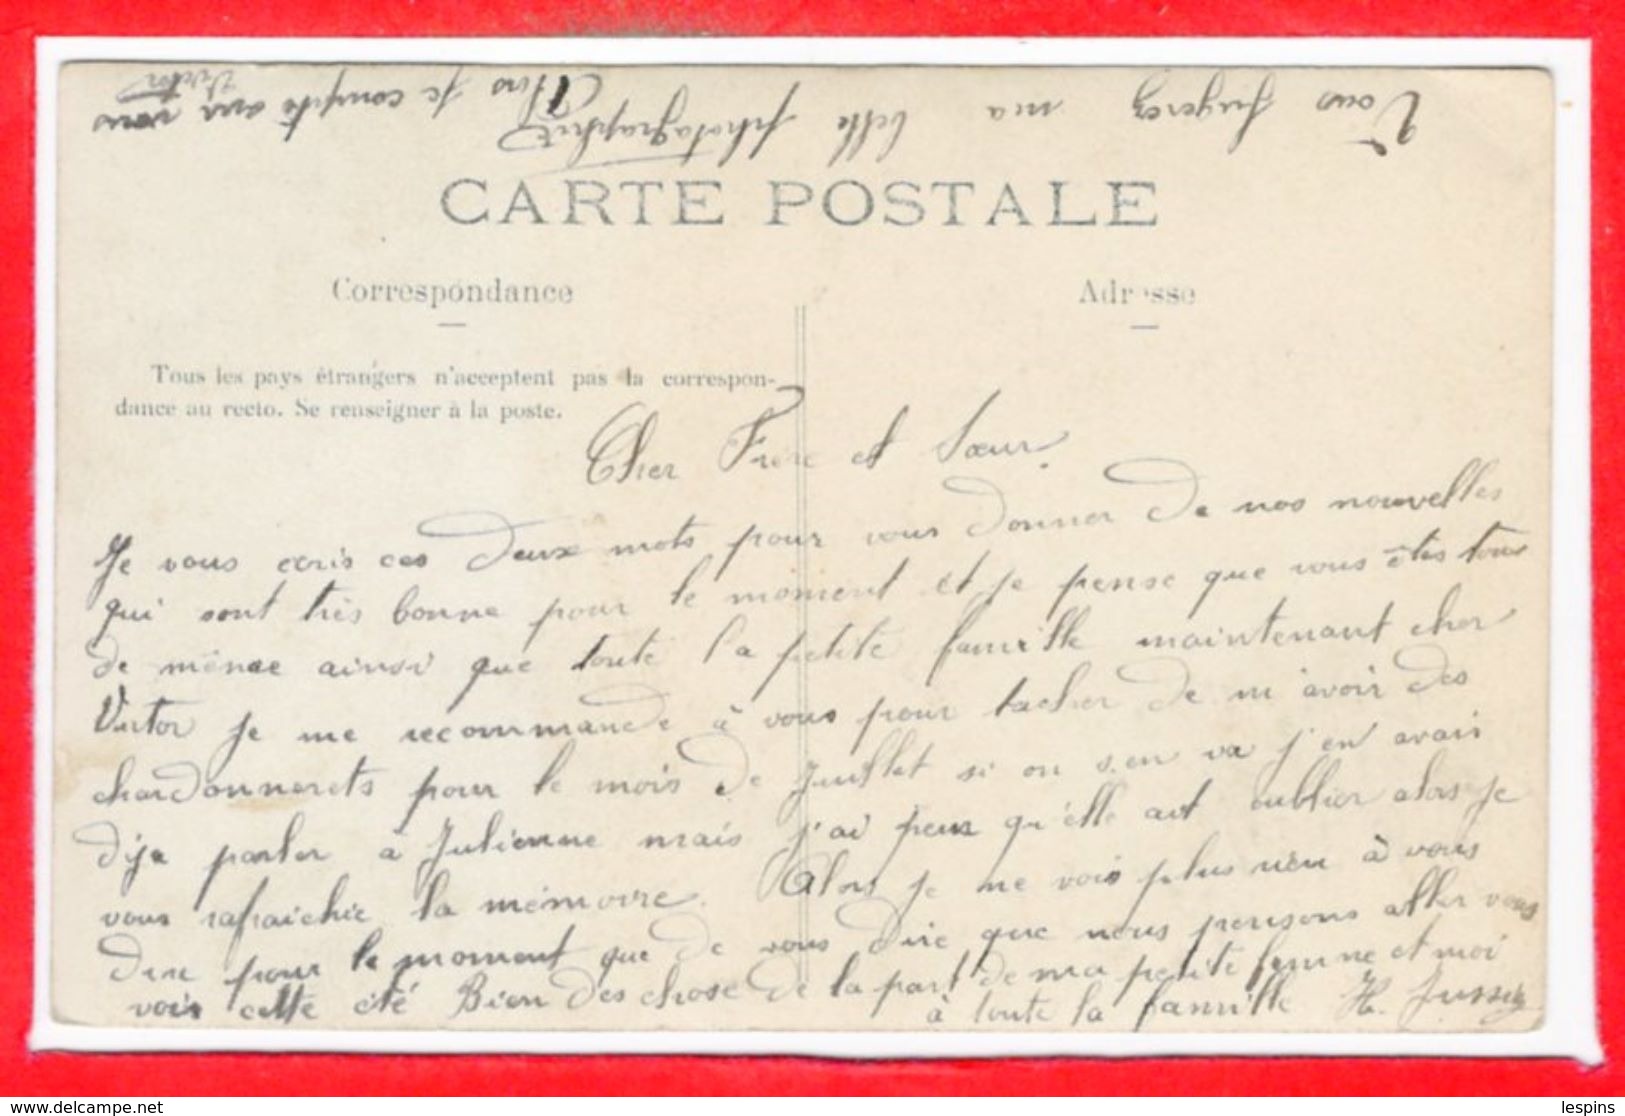 Vous jugerez ma belle photographie
Alors je compte sur vous
Victor
CARTE POSTALE
Correspondance
Adresse
Tous les pays étrangers n'acceptent pas la correspon-
dance au recto. Se renseigner à la poste.
Cher Frère et Sœur.
Je vous écris ces deux mots pour vous donner de nos nouvelles
qui sont très bonne pour le moment et je pense que vous êtes tous
de même ainsi que toute la petite famille maintenant cher
Victor je me recommande à vous pour tacher de m'avoir des
chardonnerets pour le mois de Juillet si on s'en va j'en avais
déja parler a Julienne mais j'ai peur qu'elle ait oublier alors je
vous rafraichie la mémoire. Alors je ne vois plus rien à vous
dire pour le moment que de vous dire que nous pensons aller vous
voir cette été Bien des chose de la part de ma petite femme et moi
à toute la famille H.
www.delcampe.net
lespins